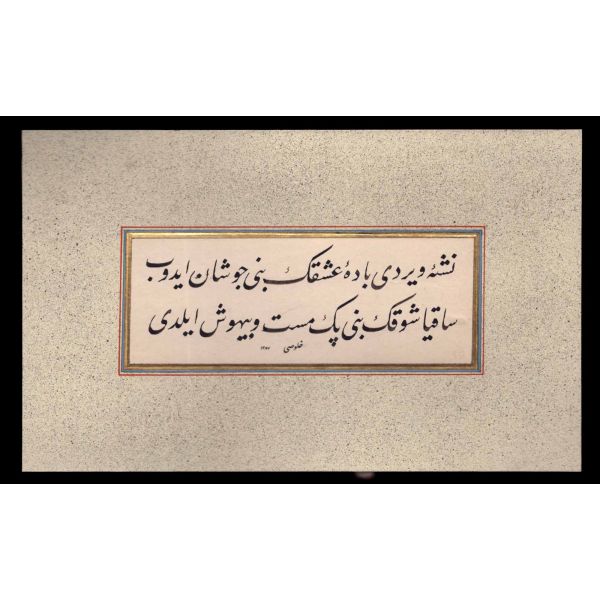 نشئه ویردی بادهٔ عشقڭ بنی جوشان ایدوب
ساقیا شوقڭ بنی پك مست و بیهوش ایلدی
خلوصی